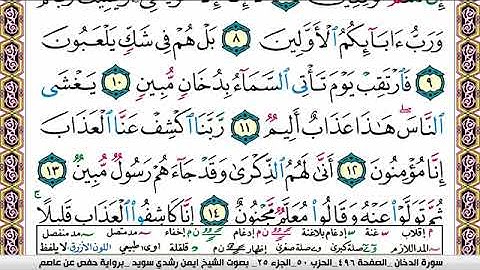 وَرَبُّ ءَابَآئِكُمُ ٱلْأَوَّلِينَ ٨ بَلْ هُمْ فِى شَكٍّ يَلْعَبُونَ
٩ فَٱرْتَقِبْ يَوْمَ تَأْتِى ٱلسَّمَآءُ بِدُخَانٍ مُّبِينٍ ١٠ يَغْشَى
ٱلنَّاسَ ۖ هَٰذَا عَذَابٌ أَلِيمٌ ١١ رَّبَّنَا ٱكْشِفْ عَنَّا ٱلْعَذَابَ
إِنَّا مُؤْمِنُونَ ١٢ أَنَّىٰ لَهُمُ ٱلذِّكْرَىٰ وَقَدْ جَآءَهُمْ رَسُولٌ مُّبِينٌ ١٣
ثُمَّ تَوَلَّوْا۟ عَنْهُ وَقَالُوا۟ مُعَلَّمٌ مَّجْنُونٌ ١٤ إِنَّا كَاشِفُوا۟ ٱلْعَذَابِ قَلِيلًا ۚ
م إقلاب غنة إدغام بلاغنة إدغام ن م إخفاء مد متصل مد منفصل
إظهار مد لازم صلة كبرى صلة صغرى قلقلة مد عوض طبيعي اللون الأزرق لا يلفظ
سورة الدخان _الصفحة ٤٩٦_الحزب ٥٠_الجزء ٢٥_ بصوت الشيخ ايمن رشدي سويد _برواية حفص عن عاصم